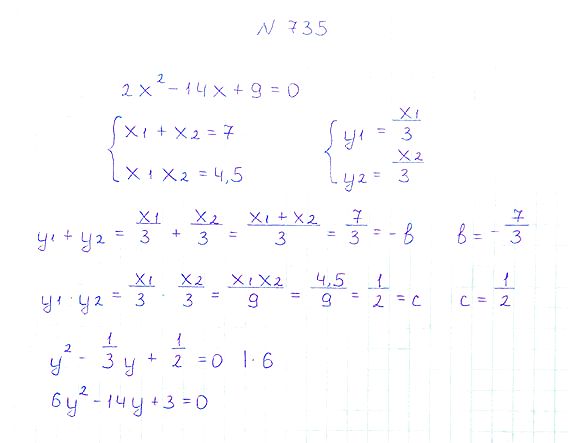 N 735
2x² - 14x + 9 = 0
{ x1 + x2 = 7
x1 x2 = 4,5
{ y1 = x1/3
y2 = x2/3
y1 + y2 = x1/3 + x2/3 = (x1 + x2)/3 = 7/3 = -b   b = -7/3
y1 · y2 = x1/3 · x2/3 = x1x2/9 = 4,5/9 = 1/2 = c   c = 1/2
y² - 1/3 y + 1/2 = 0 | · 6
6y² - 14y + 3 = 0